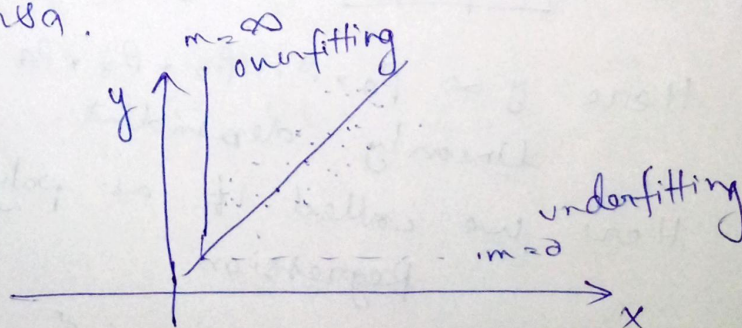 m = ∞
overfitting
y
underfitting
m = 0
x